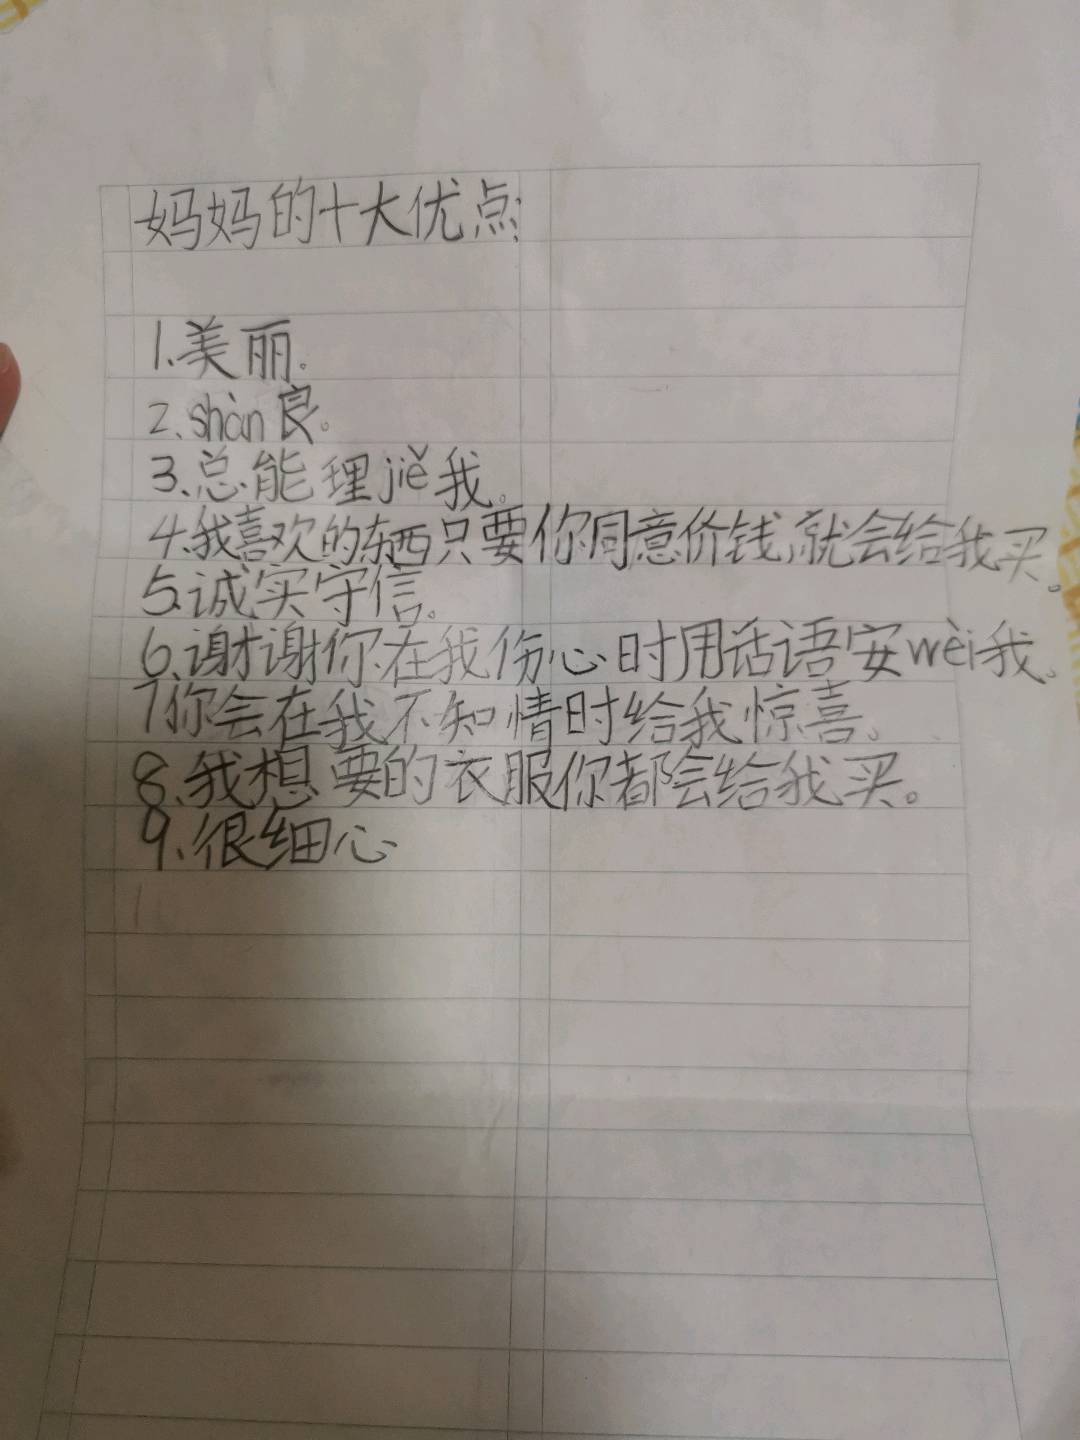 妈妈的十大优点:
1.美丽。
2.shàn良。
3.总能理jiě我。
4.我喜欢的东西只要你同意价钱,就会给我买。
5.诚实守信。
6.谢谢你在我伤心时用话语安wèi我。
7你会在我不知情时给我惊喜。
8.我想要的衣服你都会给我买。
9.很细心